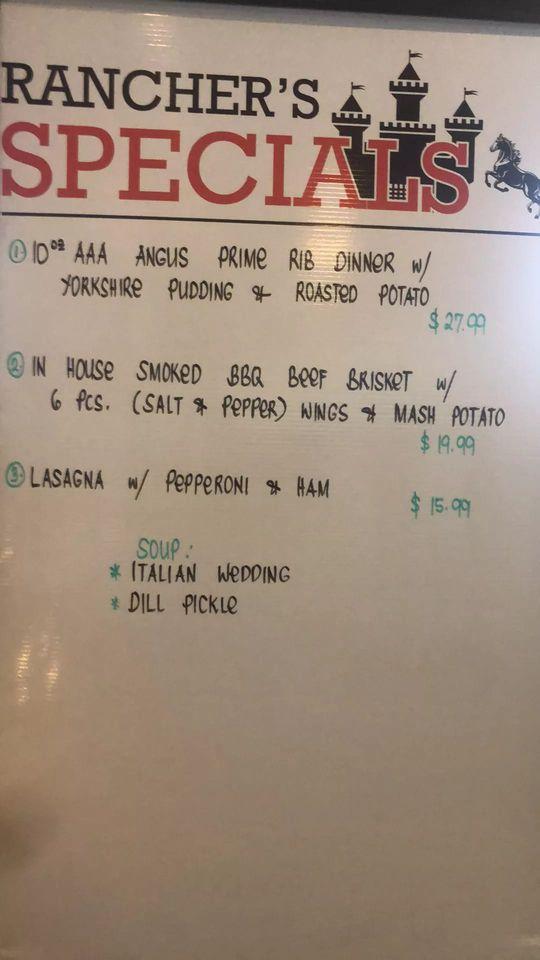 RANCHER'S
SPECIALS
1. 10oz AAA ANGUS PRIME RIB DINNER w/
YORKSHIRE PUDDING & ROASTED POTATO
$27.99
2. IN HOUSE SMOKED BBQ BEEF BRISKET w/
6 PCS. (SALT & PEPPER) WINGS & MASH POTATO
$19.99
3. LASAGNA w/ PEPPERONI & HAM
$15.99
SOUP:
* ITALIAN WEDDING
* DILL PICKLE